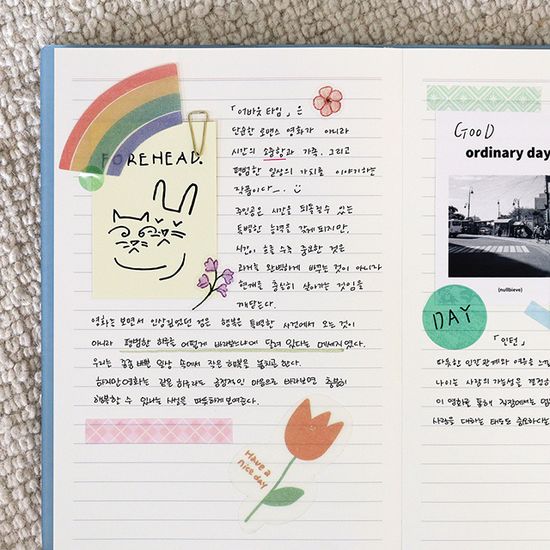 FOREHEAD.
「어바웃 타임」 은
단순한 로맨스 영화가 아니라
시간의 소중함과 가족, 그리고
평범한 일상의 가치를 이야기하는
작품이다
주인공은 시간을 되돌릴 수 있는
특별한 능력을 갖게 되지만,
시간이 흐를 수록 중요한 것은
과거를 완벽하게 바꾸는 것이 아니라
현재를 충실히 살아가는 것임을
깨닫는다.
영화를 보면서 인상깊었던 점은 행복은 특별한 사건에서 오는 것이
아니라 평범한 하루를 어떻게 바라보느냐에 달려 있다는 메세지였다.
우리는 종종 바쁜 일상 속에서 작은 행복을 놓치곤 한다.
하지만 영화는 같은 하루라도 긍정적인 마음으로 바라보면 충분히
행복할 수 있다는 사실을 따뜻하게 보여준다.
Have a
nice day
GOOD
ordinary day
(nullbieve)
DAY
「인턴」
다양한 인간관계와 여유를
나이는 사람의 가능성을 결정
이 영화를 통해 직장에서는
사람을 대하는 태도도 중요하다는